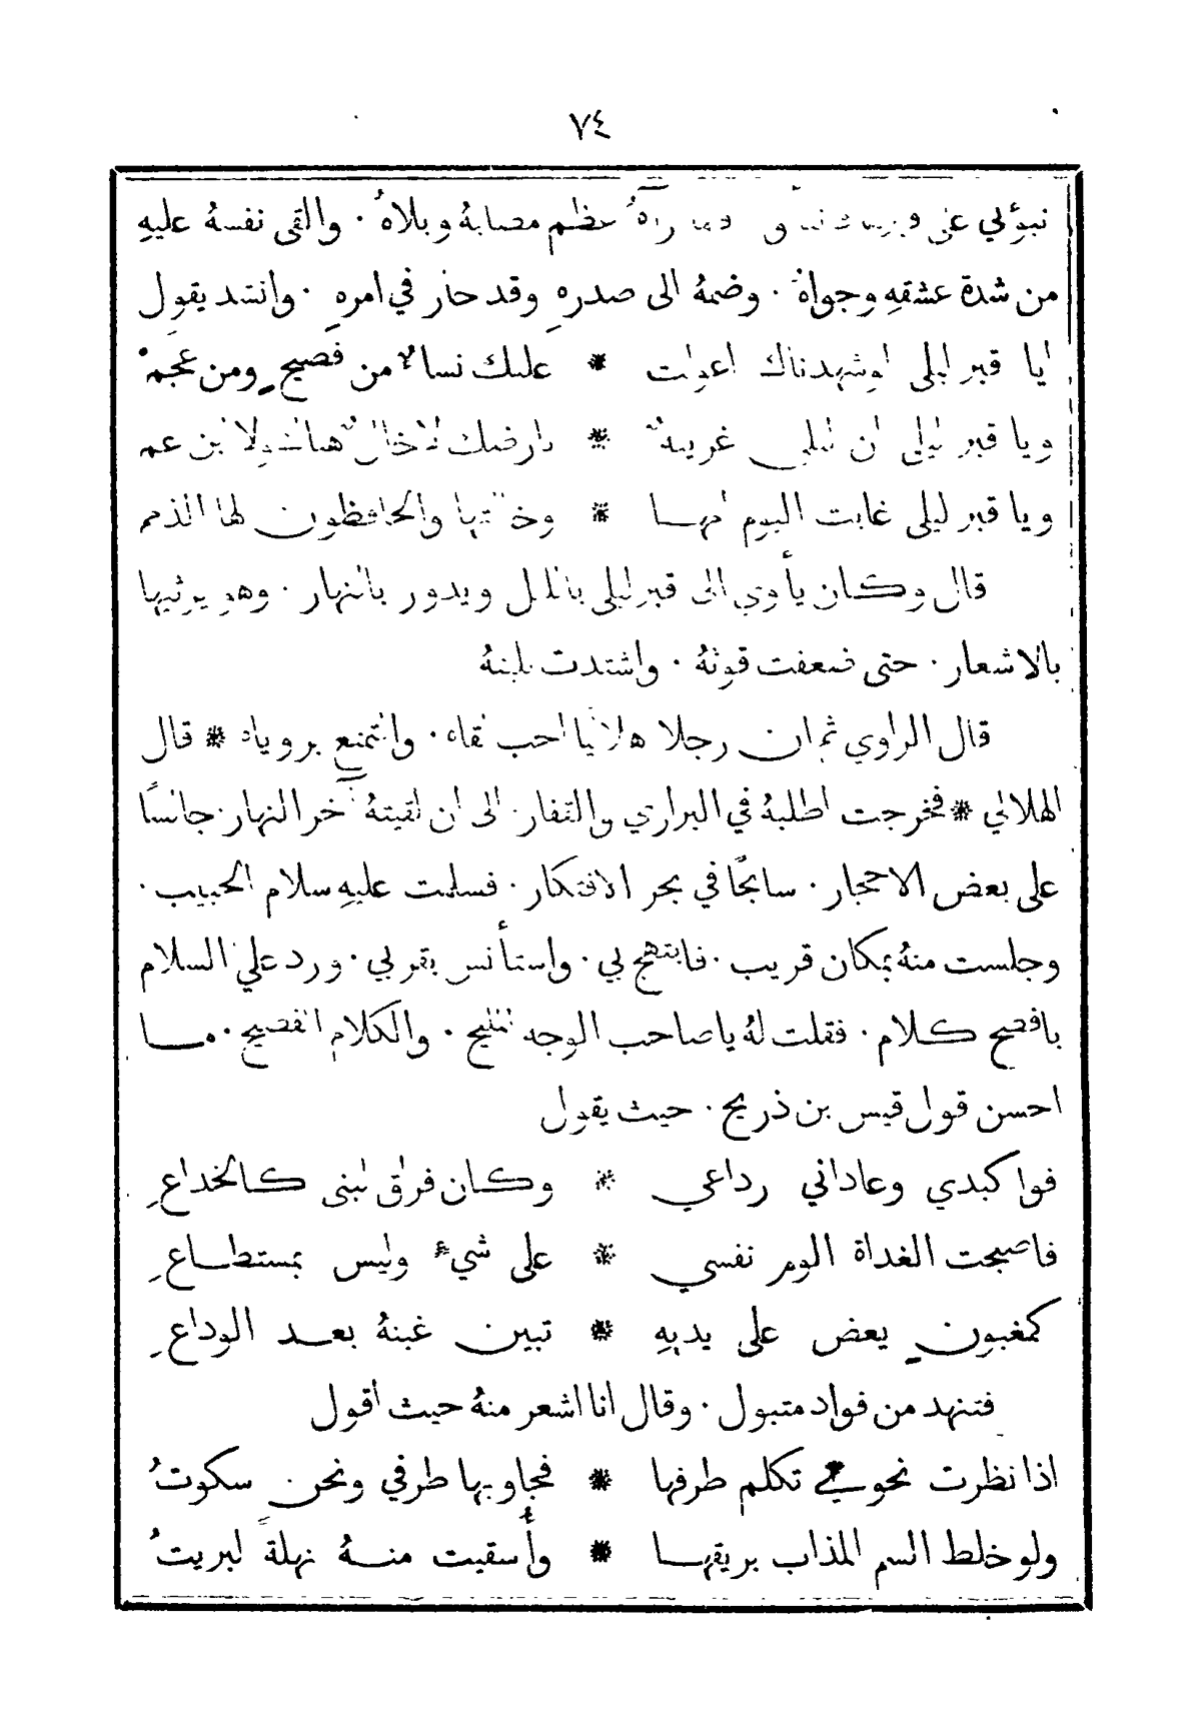 ٧٤
عظم مصابهُ وبلاهُ ٠ والقى نفسهُ عليهِ
من شدة عشقهِ وجواهُ ٠ وضمهُ الى صدرهِ وقد حار في امرهِ ٠ وانشد يقول
ايا قبر ليلى لو شهدناك اعولت * عليك نساءٌ من فصيحٍ ومن عجم
ويا قبر ليلى ان ليلى غريبةٌ * بارضك لا خالٌ هناك ولا ابن عم
ويا قبر ليلى غابت اليوم امهــا * وخالتها والحافظون لها الذمم
قال وكان يأوي الى قبر ليلى بالليل ويدور بالنهار ٠ وهو يرثيها
بالاشعار ٠ حتى ضعفت قوتهُ ٠ واشتدت بليتهُ
قال الراوي ثم ان رجلا هلاليا احب لقاه ٠ والتمتع بروياه * قال
الهلالي * فخرجت اطلبهُ في البراري والقفار ٠ الى ان لقيتهُ آخر النهار ٠ جالسًا
على بعض الاحجار ٠ سابحًا في بحر الافتكار ٠ فسلمت عليهِ سلام الحبيب ٠
وجلست منهُ بمكان قريب ٠ فابتهج بي ٠ واستأنس بقربي ٠ ورد علي السلام
بافصح كلام ٠ فقلت لهُ يا صاحب الوجه المليح ٠ والكلام الفصيح ٠ مــا
احسن قول قيس بن ذريح ٠ حيث يقول
فوا كبدي وعاداني رداعي * وكان فراق لبنى كالخداعِ
فاصبحت الغداة الوم نفسي * على شيءٍ وليس بمستطــاعِ
كمغبونٍ يعض على يديهِ * تبين غبنهُ بعــد الوداعِ
فتنهد من فواد متبول ٠ وقال انا اشعر منهُ حيث اقول
اذا نظرت نحوي تكلم طرفها * فجاوبها طرفي ونحن سكوتُ
ولو خلط السم المذاب بريقهــا * وأُسقيت منــهُ نهلةً لبريتُ